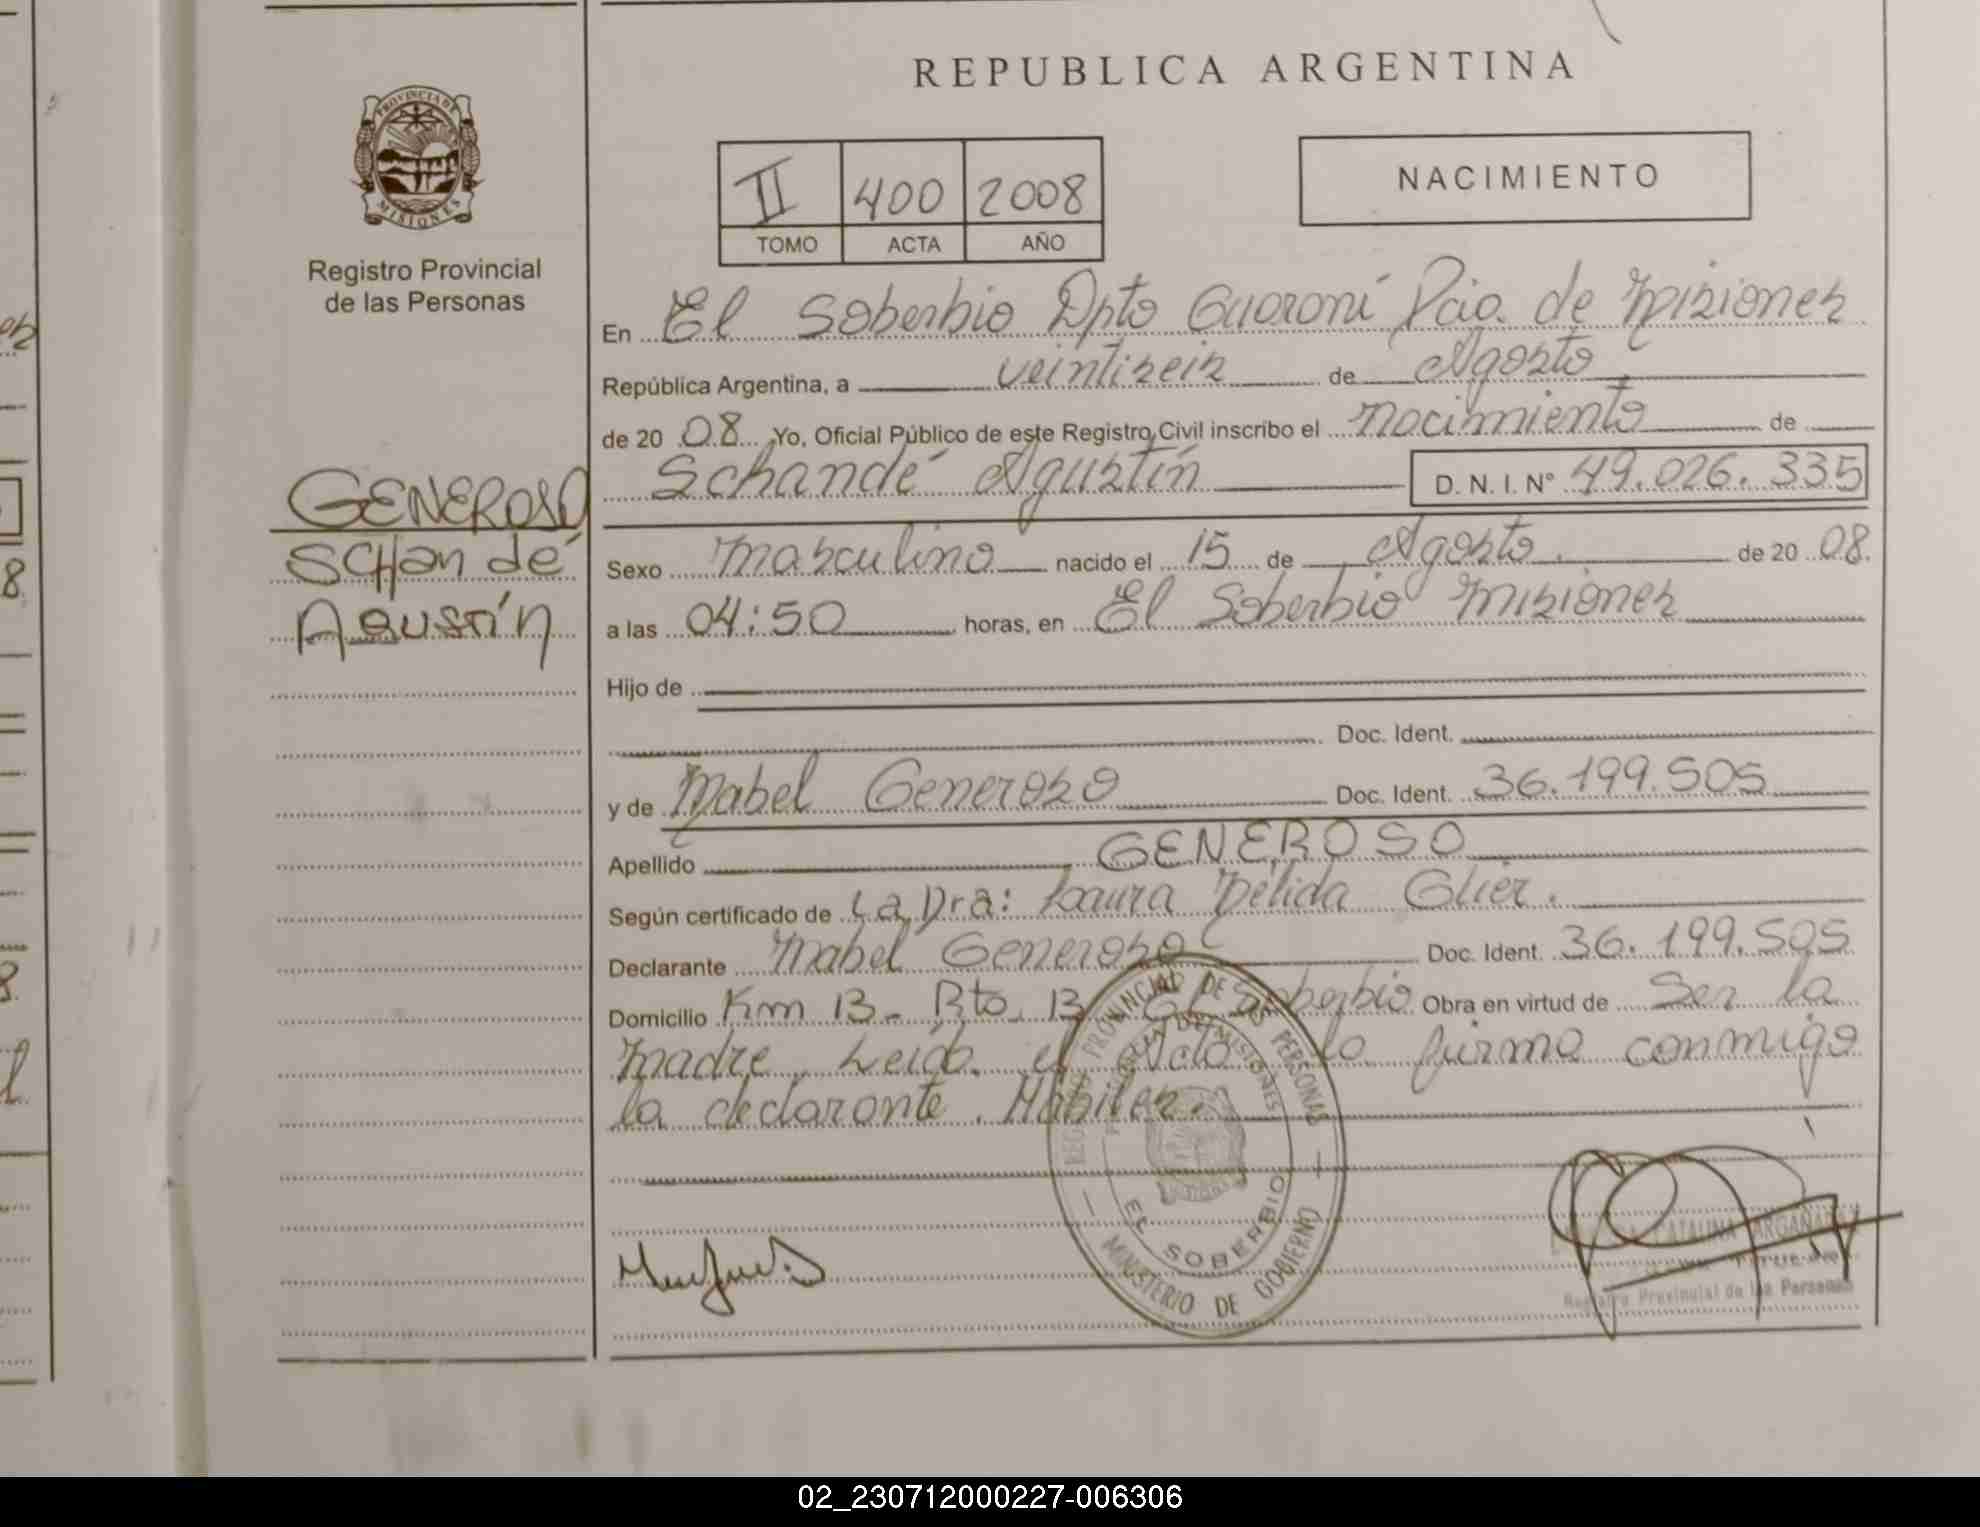 REPUBLICA ARGENTINA
PROVINCIA DE MISIONES
Registro Provincial
de las Personas
II 400 2008
TOMO ACTA AÑO
NACIMIENTO
En El Soberbio Dpto Guaraní Pcia. de Misiones
República Argentina, a veintiseis de Agosto
de 20 08 Yo, Oficial Público de este Registro Civil inscribo el nacimiento de
Schandé Agustín D. N. I. Nº 49.026.335
GENEROSO
SCHandé
Agustín
Sexo Masculino nacido el 15 de Agosto de 20 08.
a las 04:50 horas, en El Soberbio Misiones
Hijo de
Doc. Ident.
y de Mabel Generoso Doc. Ident. 36.199.505
Apellido GENEROSO
Según certificado de La Dra: Laura Nélida Glier.
Declarante Mabel Generoso Doc. Ident. 36.199.505
Domicilio Km 13 - Rta. 13 El Soberbio Obra en virtud de Ser la
madre. Leida el Acta la firma conmigo
la declarante. Hábiles.
REGISTRO PROVINCIAL DE LAS PERSONAS
PROVINCIA DE MISIONES
EL SOBERBIO
MINISTERIO DE GOBIERNO
CATALINA
Registro Provincial de las Personas
02_230712000227-006306